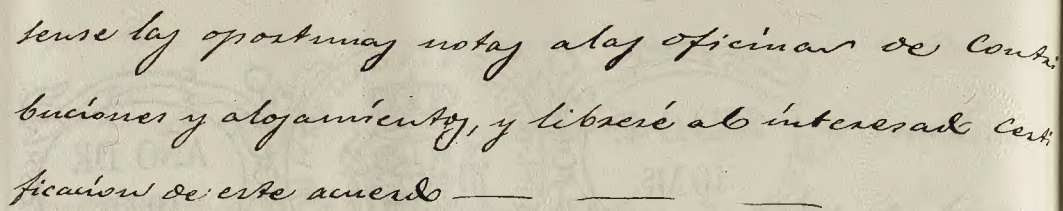 sense las oportunas notas a las oficinas de Contri
buciones y alojamientos, y librese al interesado Certi
ficacion de este acuerdo